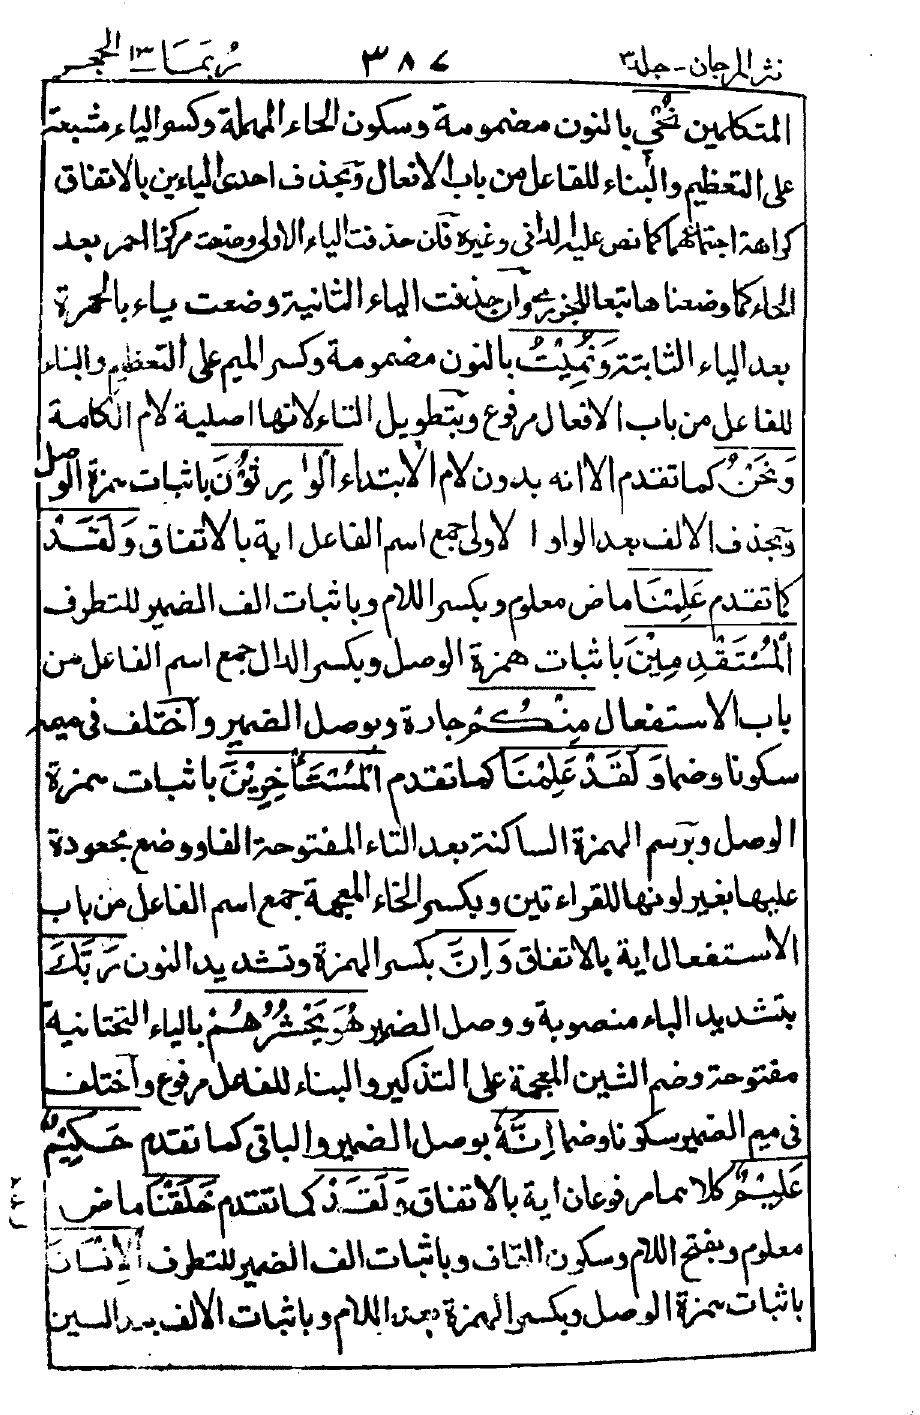 نثر المرجان - جلد٣ ٣٨٧ رُبَمَا ١٣ الحجر
المتكلمين نُحْيِ بالنون مضمومة وسكون الحاء المهملة وكسر الياء مشبعة
على التعظيم والبناء للفاعل من باب الافعال وبحذف احدى الياءين بالاتفاق
كراهة اجتماعهما كما نص عليه الدانى وغيره فان حذفت الياء الاولى وضعت مركز الحمر بعد
الحاء كما وضعناها تبعا للجزرى وان حذفت الياء الثانية وضعت ياء بالحمرة
بعد الياء الثابتة وَنُمِيْتُ بالنون مضمومة وكسر الميم على التعظيم والبناء
للفاعل من باب الافعال مرفوع وبتطويل التاء لانها اصلية لام الكلمة
وَنَحْنُ كما تقدم الا انه بدون لام الابتداء الْوَارِثُوْنَ باثبات همزة الوصل
وبحذف الالف بعد الواو الاولى جمع اسم الفاعل اية بالاتفاق وَلَقَدْ
كما تقدم عَلِمْنَا ماض معلوم وبكسر اللام وباثبات الف الضمير للتطرف
الْمُسْتَقْدِمِيْنَ باثبات همزة الوصل وبكسر الدال جمع اسم الفاعل من
باب الاستفعال مِنْكُمْ جارة وبوصل الضمير واختلف فى ميمه
سكونا وضما وَلَقَدْ عَلِمْنَا كما تقدم الْمُسْتَأْخِرِيْنَ باثبات همزة
الوصل وبرسم الهمزة الساكنة بعد التاء المفتوحة الفا ووضع مجعودة
عليها بغير لونها للقراءتين وبكسر الخاء المعجمة جمع اسم الفاعل من باب
الاستفعال اية بالاتفاق وَاِنَّ بكسر الهمزة وتشديد النون رَبَّكَ
بتشديد الباء منصوبة ووصل الضمير هُوَ يَحْشُرُهُمْ بالياء التحتانية
مفتوحة وضم الشين المعجمة على التذكير والبناء للفاعل مرفوع واختلف
فى ميم الضمير سكونا وضما اِنَّهٗ بوصل الضمير والباقى كما تقدم حَكِيْمٌ
عَلِيْمٌ كلاهما مرفوعان اية بالاتفاق وَلَقَدْ كما تقدم خَلَقْنَا ماض
معلوم وبفتح اللام وسكون القاف وباثبات الف الضمير للتطرف الْاِنْسَانَ
باثبات همزة الوصل وبكسر الهمزة بعد اللام وباثبات الالف بعد السين